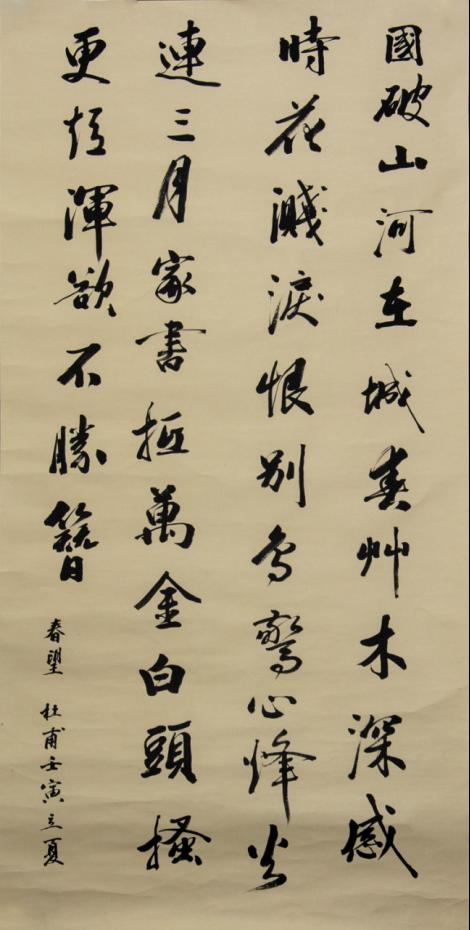 國破山河在城春艸木深感
時花濺淚恨別鳥驚心烽火
連三月家書抵萬金白頭搔
更短渾欲不勝簪
春望 杜甫壬寅立夏